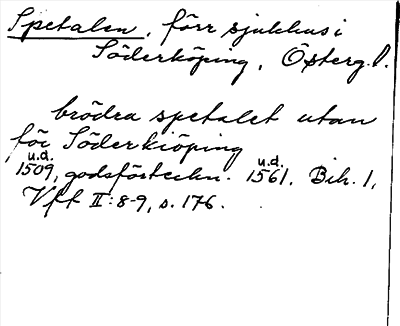 Spetalen, förr sjukhus i
Söderköping, Österg.l.
brödra spetalet utan
för Söderkiöping
u.d. u.d.
1509, godsförteckn. 1561, Bih. 1,
Vff II:8-9, s. 176.